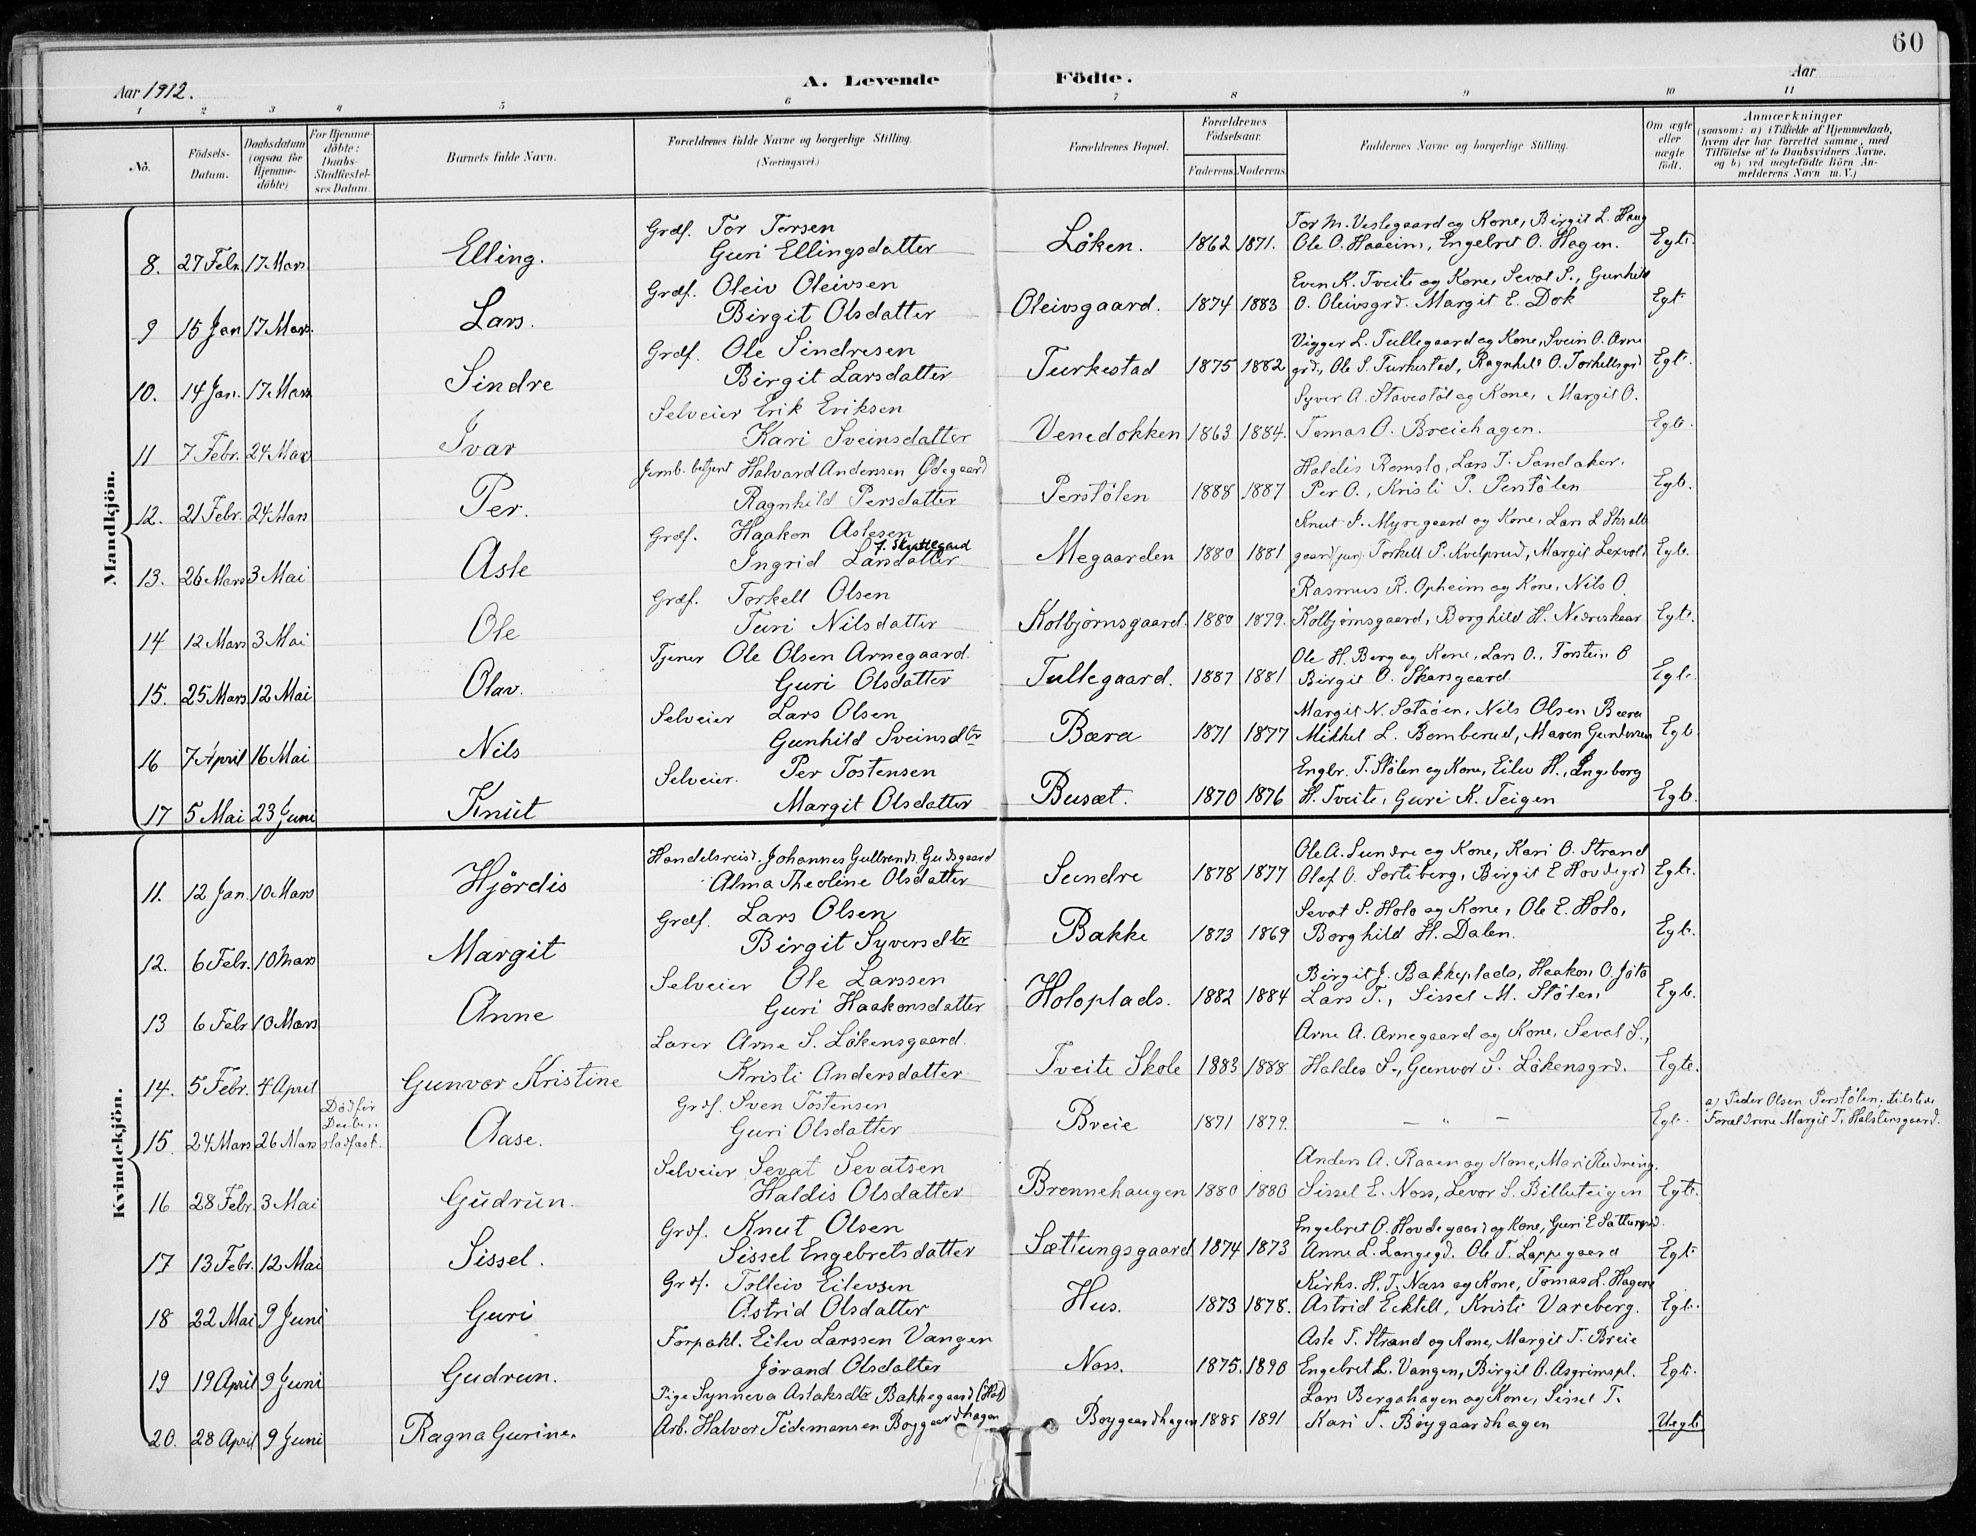 60
Aar 1912. A. Levende Födte. Aar
1 2 3 4 5 6 7 8 9 10 11
No. Födsels-Datum. Daabsdatum (ogsaa for Hjemmedöbte) For Hjemmedöbte: Daabs-Stadfæstelses Datum. Barnets fulde Navn. Forældrenes fulde Navne og borgerlige Stilling. (Næringsvei.) Forældrenes Bopæl. Forældrenes Födselsaar. Faderens. Moderens. Faddernes Navne og borgerlige Stilling. Om ægte eller uægte födt. Anmærkninger (saasom: a) i Tilfælde af Hjemmedaab, hvem der har forrettet samme, med Tilföielse af to Daabsvidners Navne, og b) ved uægtefödte Börn Anmelderens Navn m. V.)
Mandkjön.
Grdf. Tor Torsen Tor M. Veslegaard og Kone, Birgit L. Haug
8. 27 Febr. 17 Mars Elling. Guri Ellingsdatter Löken. 1862 1871. Ole O. Haaeim, Engebret O. Hagen. Egte.
Grdf. Oleiv Oleivsen Even K. Tveite og Kone, Sevat S., Gunhild
9 15 Jan 17 Mars. Lars. Birgit Olsdatter Oleivsgaard. 1874 1883 O. Oleivsgrd. Margit E. Dok Egt.
Grdf. Ole Sindresen Vigger L. Tullegaard og Kone, Svein O. Arne
10. 14 Jan. 17 Mars Sindre Birgit Larsdatter Turkestad 1875 1882 grd., Ole S. Turkestad, Ragnhild O. Torkellsgrd Egt.
Selveier Erik Eriksen Syver A. Stavestöl og Kone, Margit O.
11 7 Febr. 24 Mars Ivar Kari Sveinsdatter Venedokken 1863 1884. Tomas O. Breiehagen. Egte.
Jernb. betjent Halvard Andersen Ødegaard Haldis Romslo, Lars T. Sandaker.
12. 21 Febr. 24 Mars Per. Ragnhild Persdatter Perstölen 1888 1887 Per O., Kristi P. Perstölen Egte.
Grdf. Haakon Aslesen Knut P. Myregaard og Kone, Lars L Skratte
13. 26 Mars 3 Mai Asle Ingrid Larsdatter f. Skrattegard Megaarden 1880 1881 gaard (jun). Torkell P. Kvelprud, Margit Lexvold Egte.
Grdf. Torkell Olsen Rasmus R. Opheim og Kone, Nils O.
14 12 Mars 3 Mai Ole Turi Nilsdatter Kolbjørnsgaard. 1880 1879. Kolbjørnsgaard, Borghild H. Nedreskaar Egte.
Tjener Ole Olsen Arnegaard. Ole H. Berg og Kone, Lars O., Torstein O
15. 25 Mars 12 Mai Olav. Guri Olsdatter Tullegaard. 1887 1881 Birgit O. Skarsgaard Egte.
Selveier Lars Olsen Margit N. Sataöen, Nils Olsen Bæra
16 7 April 16 Mai Nils Gunhild Sveinsdtr Bæra 1871 1877 Mikkel L. Bomberud, Maren Gundersen Egt.
Selveier. Per Tostensen Engbr. T. Stölen og Kone, Eilev H., Ingeborg
17 5 Mai 23 Juni Knut Margit Olsdatter Busæt. 1870 1876 H. Tveite, Guri K. Teigen Egte.
Kvindekjön.
Handelsreis. Johannes Gulbrands. Gudsgaard Ole A. Sundre og Kone, Kari O. Strand
11. 12 Jan 10 Mars Hjördis Alma Theoline Olsdatter Sundre 1878 1877 Olaf O. Sorteberg, Birgit E Hovdegrd Egte.
Grdf. Lars Olsen Sevat S. Holo og Kone, Ole E. Holo,
12. 6 Febr. 10 Mars Margit Birgit Syversdtr Bakke 1873 1869 Borghild H. Dalen. Egte.
Selveier Ole Larssen Birgit J. Bakkeplads, Haakon O. Jöto
13 6 Febr 10 Mars Anne Guri Haakonsdatter Holoplads. 1882 1884 Lars T., Sissel M. Stölen Egte.
Lærer Arne S. Lökensgaard. Arne A. Arnegaard og Kone, Sevat S.,
14. 5 Febr. 4 April Gunvor Kristine Kristi Andersdatter Tveite Skole 1883 1888 Haldis S., Gunvor S. Lökensgrd. Egte.
Död för Daabens stadfæst. Grdf. Sven Tostensen a) Peder Olsen Perstölen; tilstede
15. 24 Mars 26 Mars Aase. Guri Olsdatter Breie 1871 1879. — " — Egt. Forældrene Margit T. Halstensgaard.
Selveier Sevat Sevatsen Anders A. Raaen og Kone, Mari Rudning.
16 28 Febr. 3 Mai Gudrun. Haldis Olsdatter Brennehaugen 1880 1880 Sissel E. Noss, Levor S. Billuteigen Egte.
Grdf. Knut Olsen Engebret O. Hovdegaard og Kone, Guri E Sattungrd.
17 13 Febr. 12 Mai Sissel. Sissel Engebretsdatter Sættungsgaard 1874 1873 Anne L. Langegd. Ole T. Lappegaard Egt.
Grdf. Tolleiv Eilevsen Kirks. H. T. Næss og Kone, Tomas L. Hagene
18 22 Mai 9 Juni Guri Astrid Olsdatter Hus. 1873 1878. Astrid Ecktell, Kristi Vareberg. Egte.
Forpakt. Eilev Larssen Vangen Asle T. Strand og Kone, Margit T. Breie
19 19 April 9 Juni Gudrun. Jørand Olsdatter Noss. 1875. 1890 Engebret L. Vangen, Birgit O. Asgrimspl. Egte.
Pige Synneva Aslaksdtr Bakkegaard (Hol) Lars Bergahagen og Kone, Sissel T.
20. 28 April 9 Juni Ragna Gurine. Arb. Halvor Tidemansen Boygaardhagen Boygaardhagen 1885 1891 Kari T. Böygaardhagen Uegte